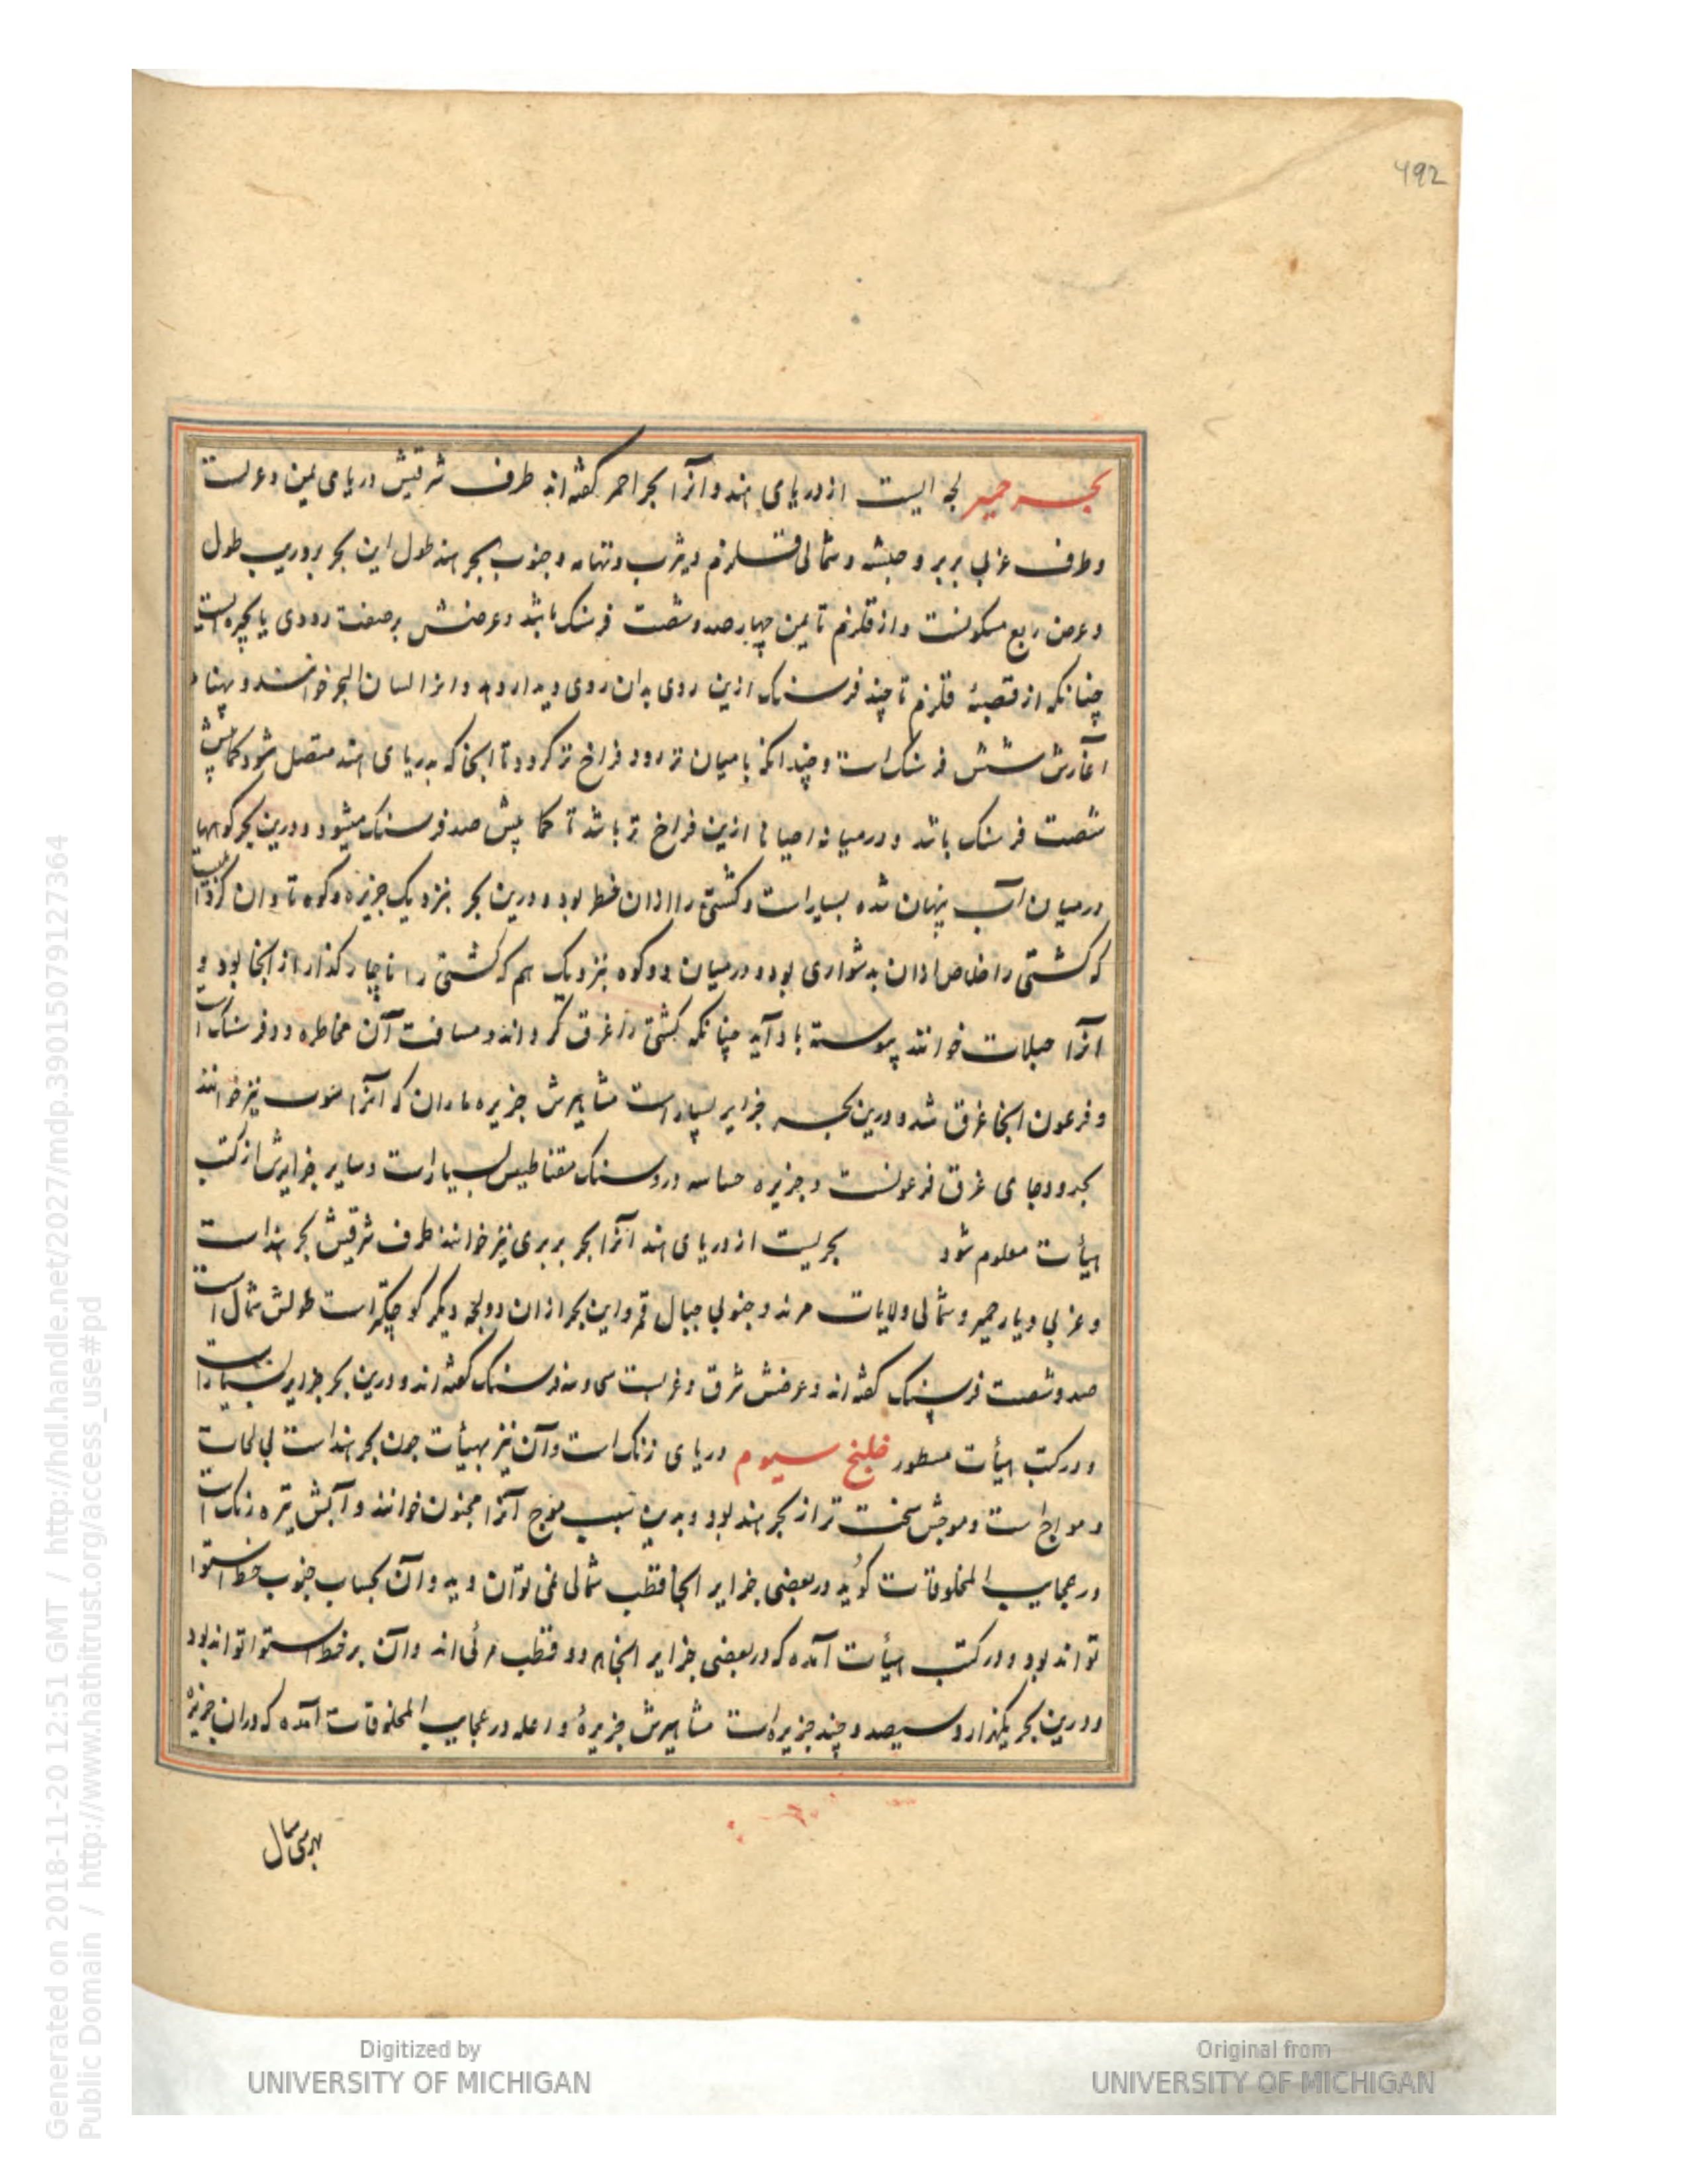 492
بحر حمیر لجه ایست از دریای هند و آنرا بحر احمر گفته‌اند طرف شرقیش دریای یمن و عربست
و طرف غربی بربر و حبشه و شمالی قلزم و یثرب و تهامه و جنوب بحر هند طول این بحر بروریب طول
و عرض ربع مسکونست و از قلزم تا یمن چهارصد و شصت فرسنک باشد و عرضش برصفت رودی یا بحیره است
چنانکه از قصبهٔ قلزم تا چند فرسنک ازین روی بدان روی دیدار دهد و انرا لسان البحر خوانند و پهنا
آغازش شش فرسنک است و چندانکه بامیان تر رود فراخ تر کردد تا انجا که بدریای هند متصل شود کمابیش
شصت فرسنک باشد و درمیانه احیانا ازین فراخ تر باشد تا کمابیش صد فرسنک میشود و درین بحر کوهها
درمیان آب پنهان شده بسیار است و کشتی را ازان خطر بود و درین بحر بنزدیک جزیره و کوه تاوان
که کشتی را خلاص ازان بدشواری بود و درمیان دو کوه نزدیک هم که کشتی را ناچار کذار از انجا بود و
آنرا جبلات خوانند پیوسته باد آید چنانکه کشتی را غرق کرداند و مسافت آن مخاطره دو فرسنک است
و فرعون انجا غرق شد و درین بحر جزایر بسیار است مشاهیرش جزیره ماران که آنرا نیز خوانند
بحدود جای غرق فرعونست و جزیره حساسه درو سنک مقناطیس بسیار است و سایر جزایرش از کتب
هیأت معلوم شود بحریست از دریای هند آنرا بحر بربری نیز خوانند طرف شرقیش بحر هند است
و غربی دیار حمیر و شمالی ولایات و جنوبی جبال قمر و این بحر ازان دو لجه دیکر کوچکتر است طولش شمال است
صد و شصت فرسنک کفته‌اند و عرضش شرق و غربست سی و سه فرسنک کفته‌اند و درین بحر جزایر بسیار است
و در کتب هیأت مسطور خلیج سیوم دریای زنک است و آن نیز بهیأت چون بحر هند است
و مواج است و موجش سخت تر از بحر هند بود و بدین سبب موج آنرا مجنون خوانند و آبش تیره زنک است
در عجایب المخلوقات کوید در بعضی جزایر انجا قطب شمالی نمی توان دید و آن بحساب جنوب خط استوا
تواند بود و در کتب هیأت آمده که در بعضی جزایر انجا هر دو قطب مرئی‌اند وآن بر خط استوا تواند بود
و درین بحر یکهزار و سیصد و چند جزیره است مشاهیرش جزیرهٔ در عجایب المخلوقات آمده که دران جزیره
بهر سی سال
Generated on 2018-11-20 12:51 GMT / http://hdl.handle.net/2027/mdp.39015079127364
Public Domain / http://www.hathitrust.org/access_use#pd
Digitized by
UNIVERSITY OF MICHIGAN
Original from
UNIVERSITY OF MICHIGAN